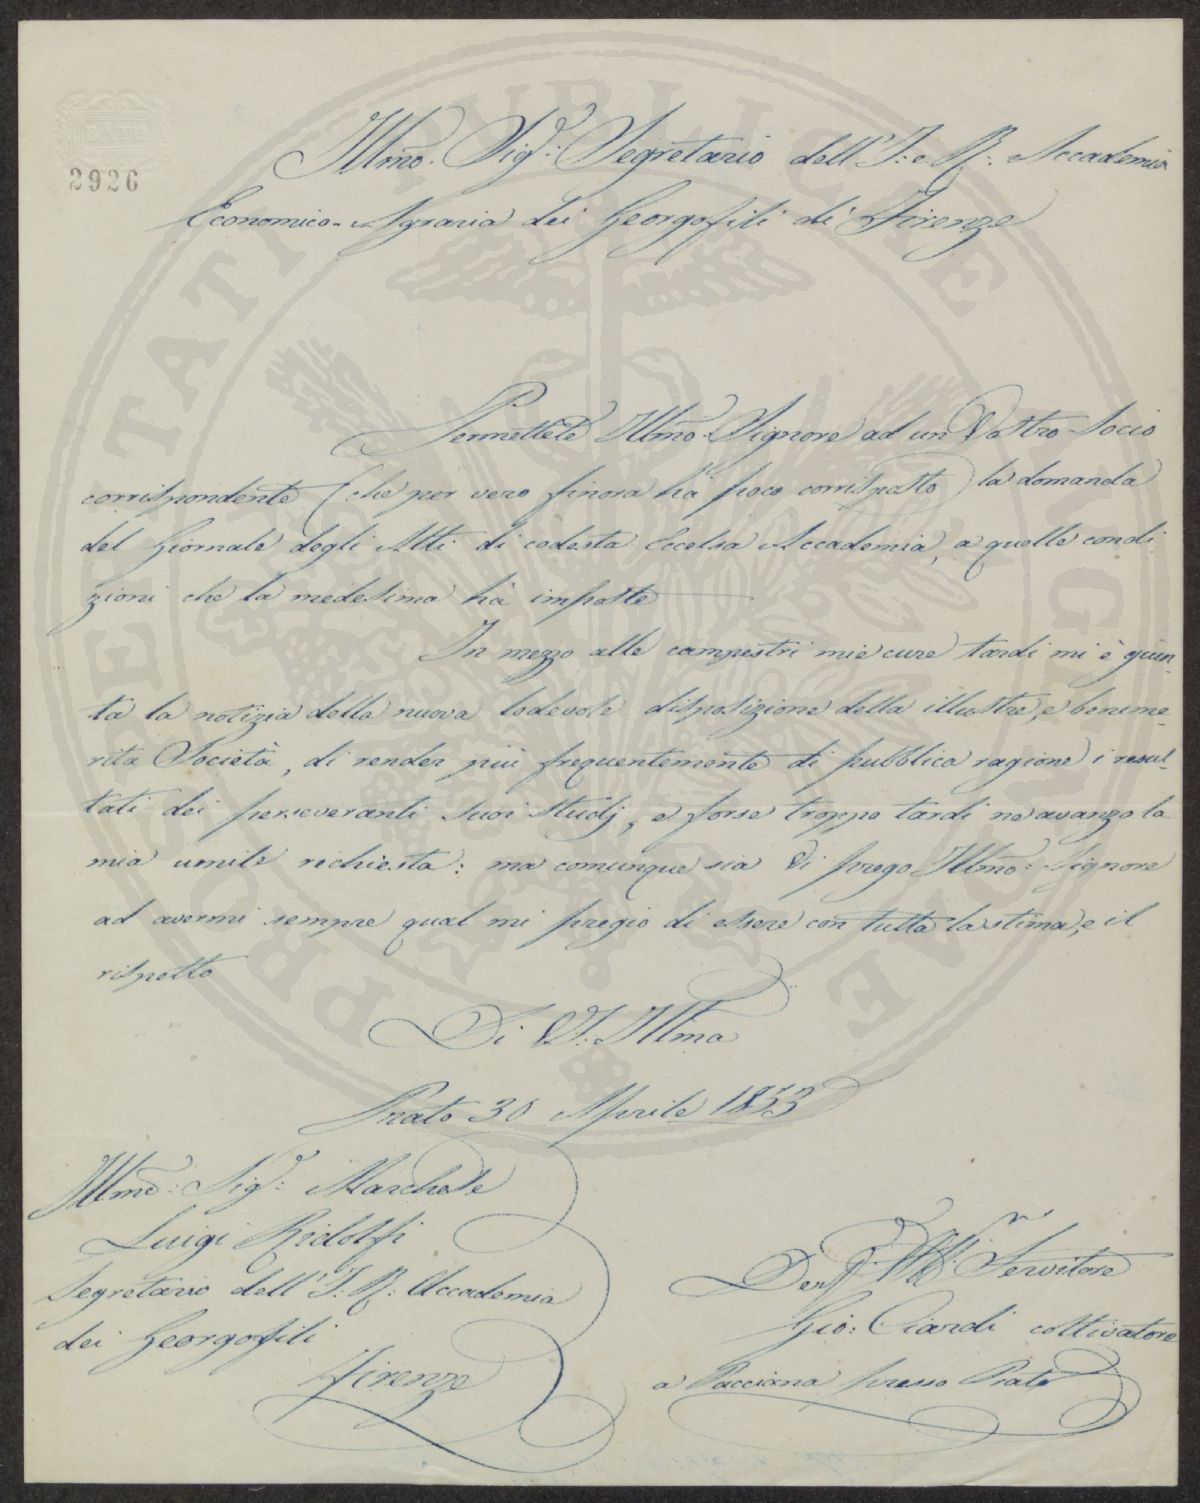 BATH
2926
Illmo. Sigr: Segretario dell' I: e R: Accademia
Economico-Agraria dei Georgofili di Firenze
Permettete Illmo: Signore ad un Vostro Socio
corrispondente (che per vero finora hà poco corrisposto) la domanda
del Giornale degli Atti di codesta Eccelsa Accademia, a quelle condi-
zioni che la medesima hà imposte
In mezzo alle campestri mie cure tardi mi è giun-
ta la notizia della nuova lodevole disposizione della illustre, e beneme-
rita Società, di render più frequentemente di pubblica ragione i resul-
tati dei perseveranti suoi studj, e forse troppo tardi ne avanzo la
mia umile richiesta: ma comunque sia Vi prego Illmo: Signore
ad avermi sempre qual mi pregio di essere con tutta la stima, e il
rispetto
Di V.S: Illma
Prato 30 Aprile 1833
Illmo: Sigr: Marchese
Luigi Ridolfi
Segretario dell' I: R: Accademia
dei Georgofili
Firenze
Servitore
Gio: Ciardi coltivatore
a Pacciana presso Prato
PROSPERITATI PUBLICAE AUGENDAE